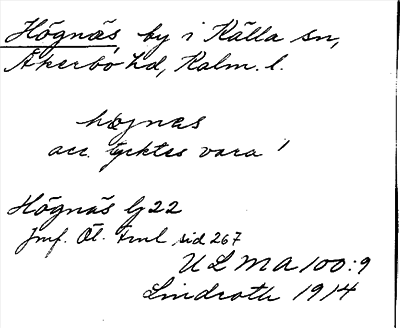 Högnäs, by i Källa sn,
Åkerbo hd, Kalm. l.
högnæs
acc. tycktes vara ˈ
Högnäs lj 22
Jmf. Öl. Frnl sid 267
ULMA 100:9
Lindroth 1914